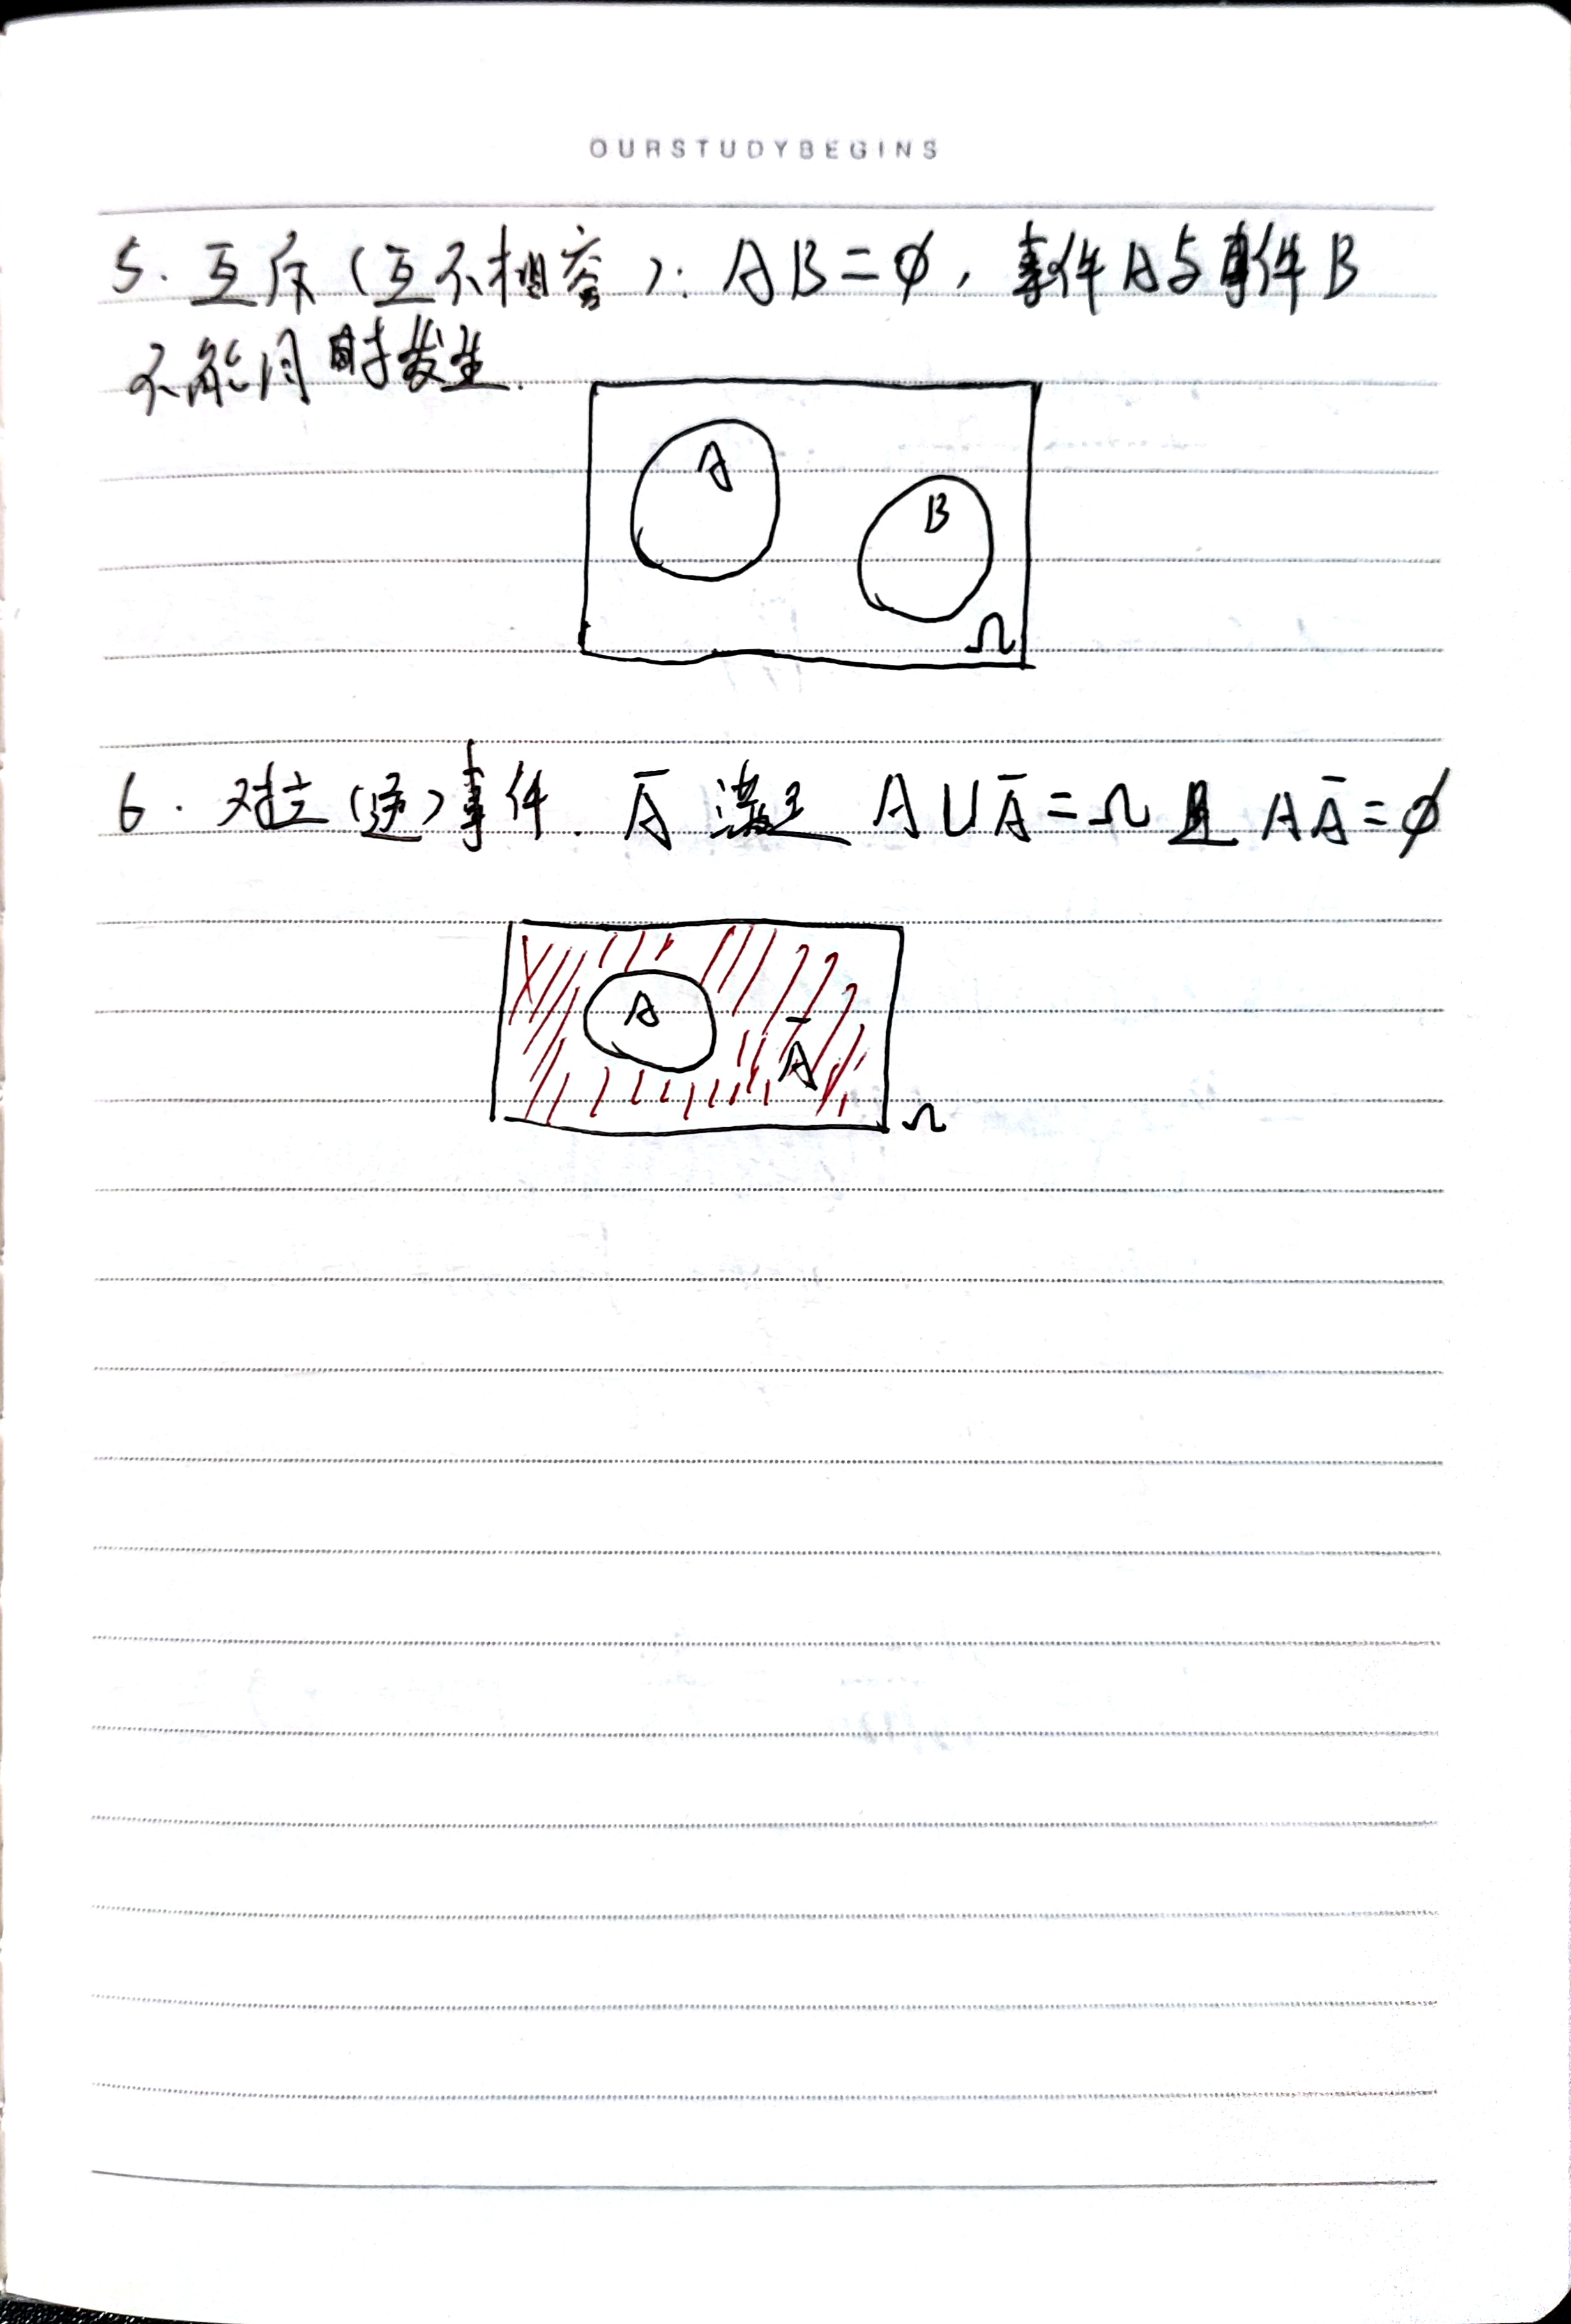 OURSTUDYBEGINS
5. 互斥(互不相容): AB=∅, 事件A与事件B
不能同时发生.
A
B
Ω
6. 对立(逆)事件. Ā 满足 A∪Ā=Ω 且 AĀ=∅
A
Ā
Ω